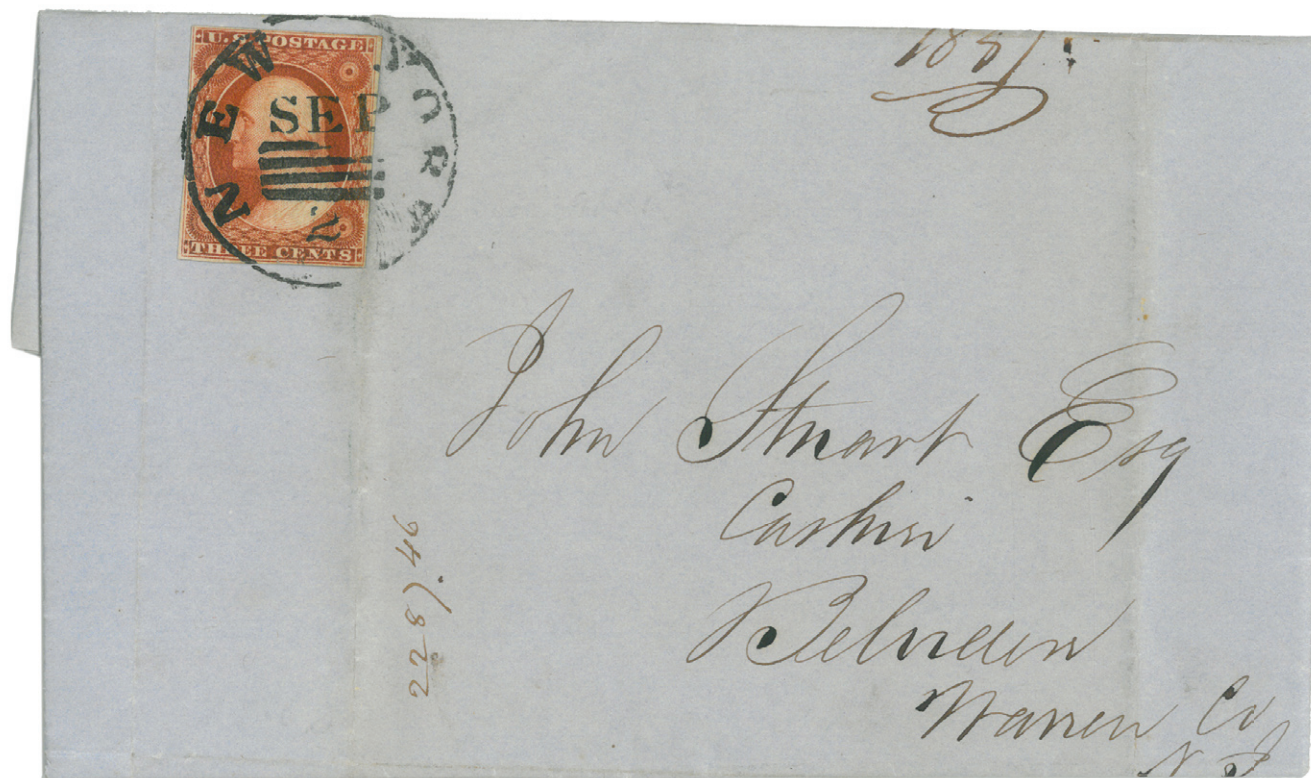 U.S. POSTAGE
THREE CENTS
NEW YORK
SEP
2
John Stuart Esq
Cashier
Belvidere
Warren Co
N J